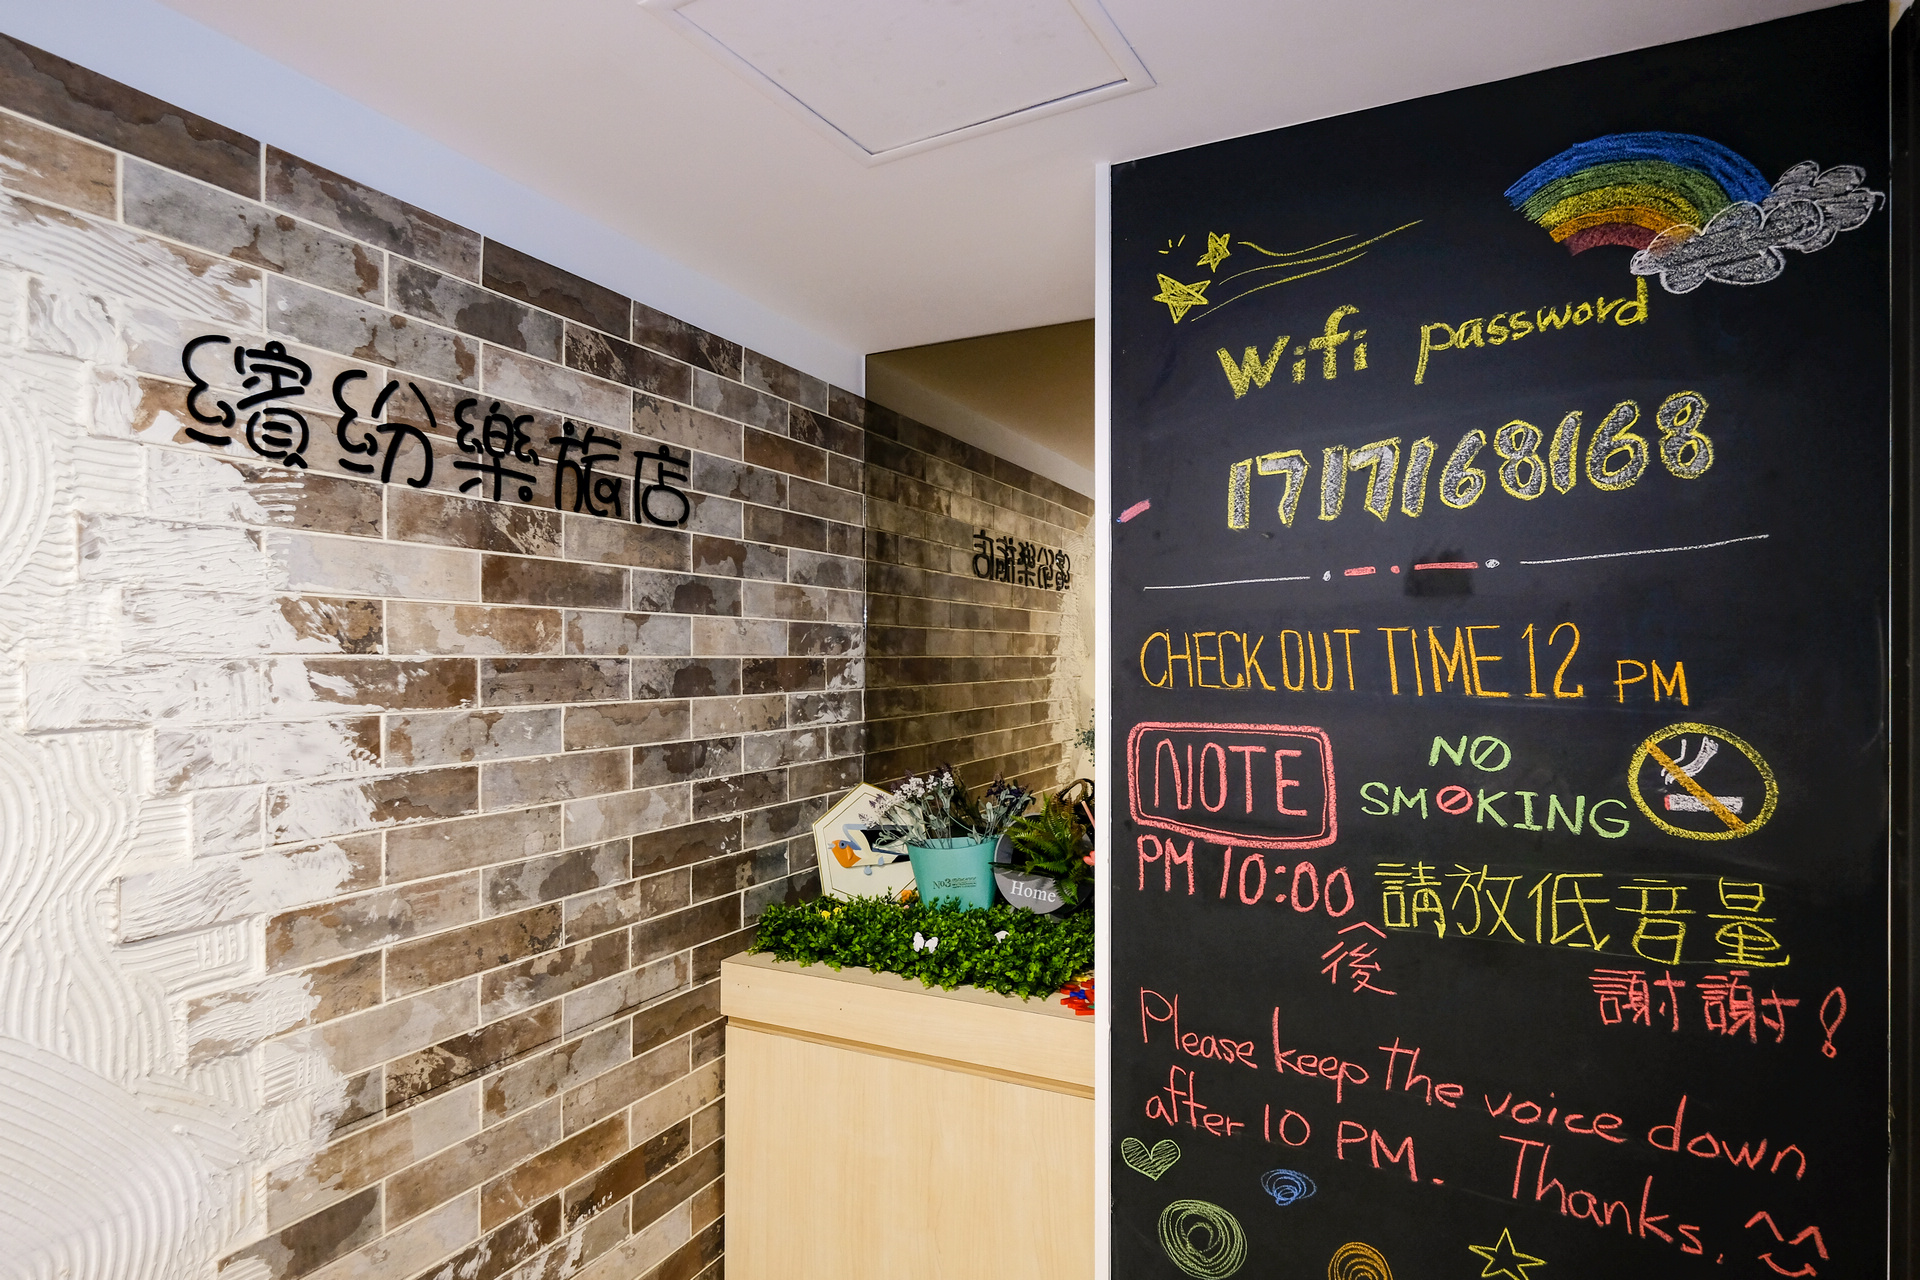 繽紛樂旅店
Wifi password
1717168168
CHECK OUT TIME 12 PM
NOTE
NO
SMOKING
PM 10:00後
請放低音量
謝謝!
Please keep the voice down
after 10 PM. Thanks.
No3
Home